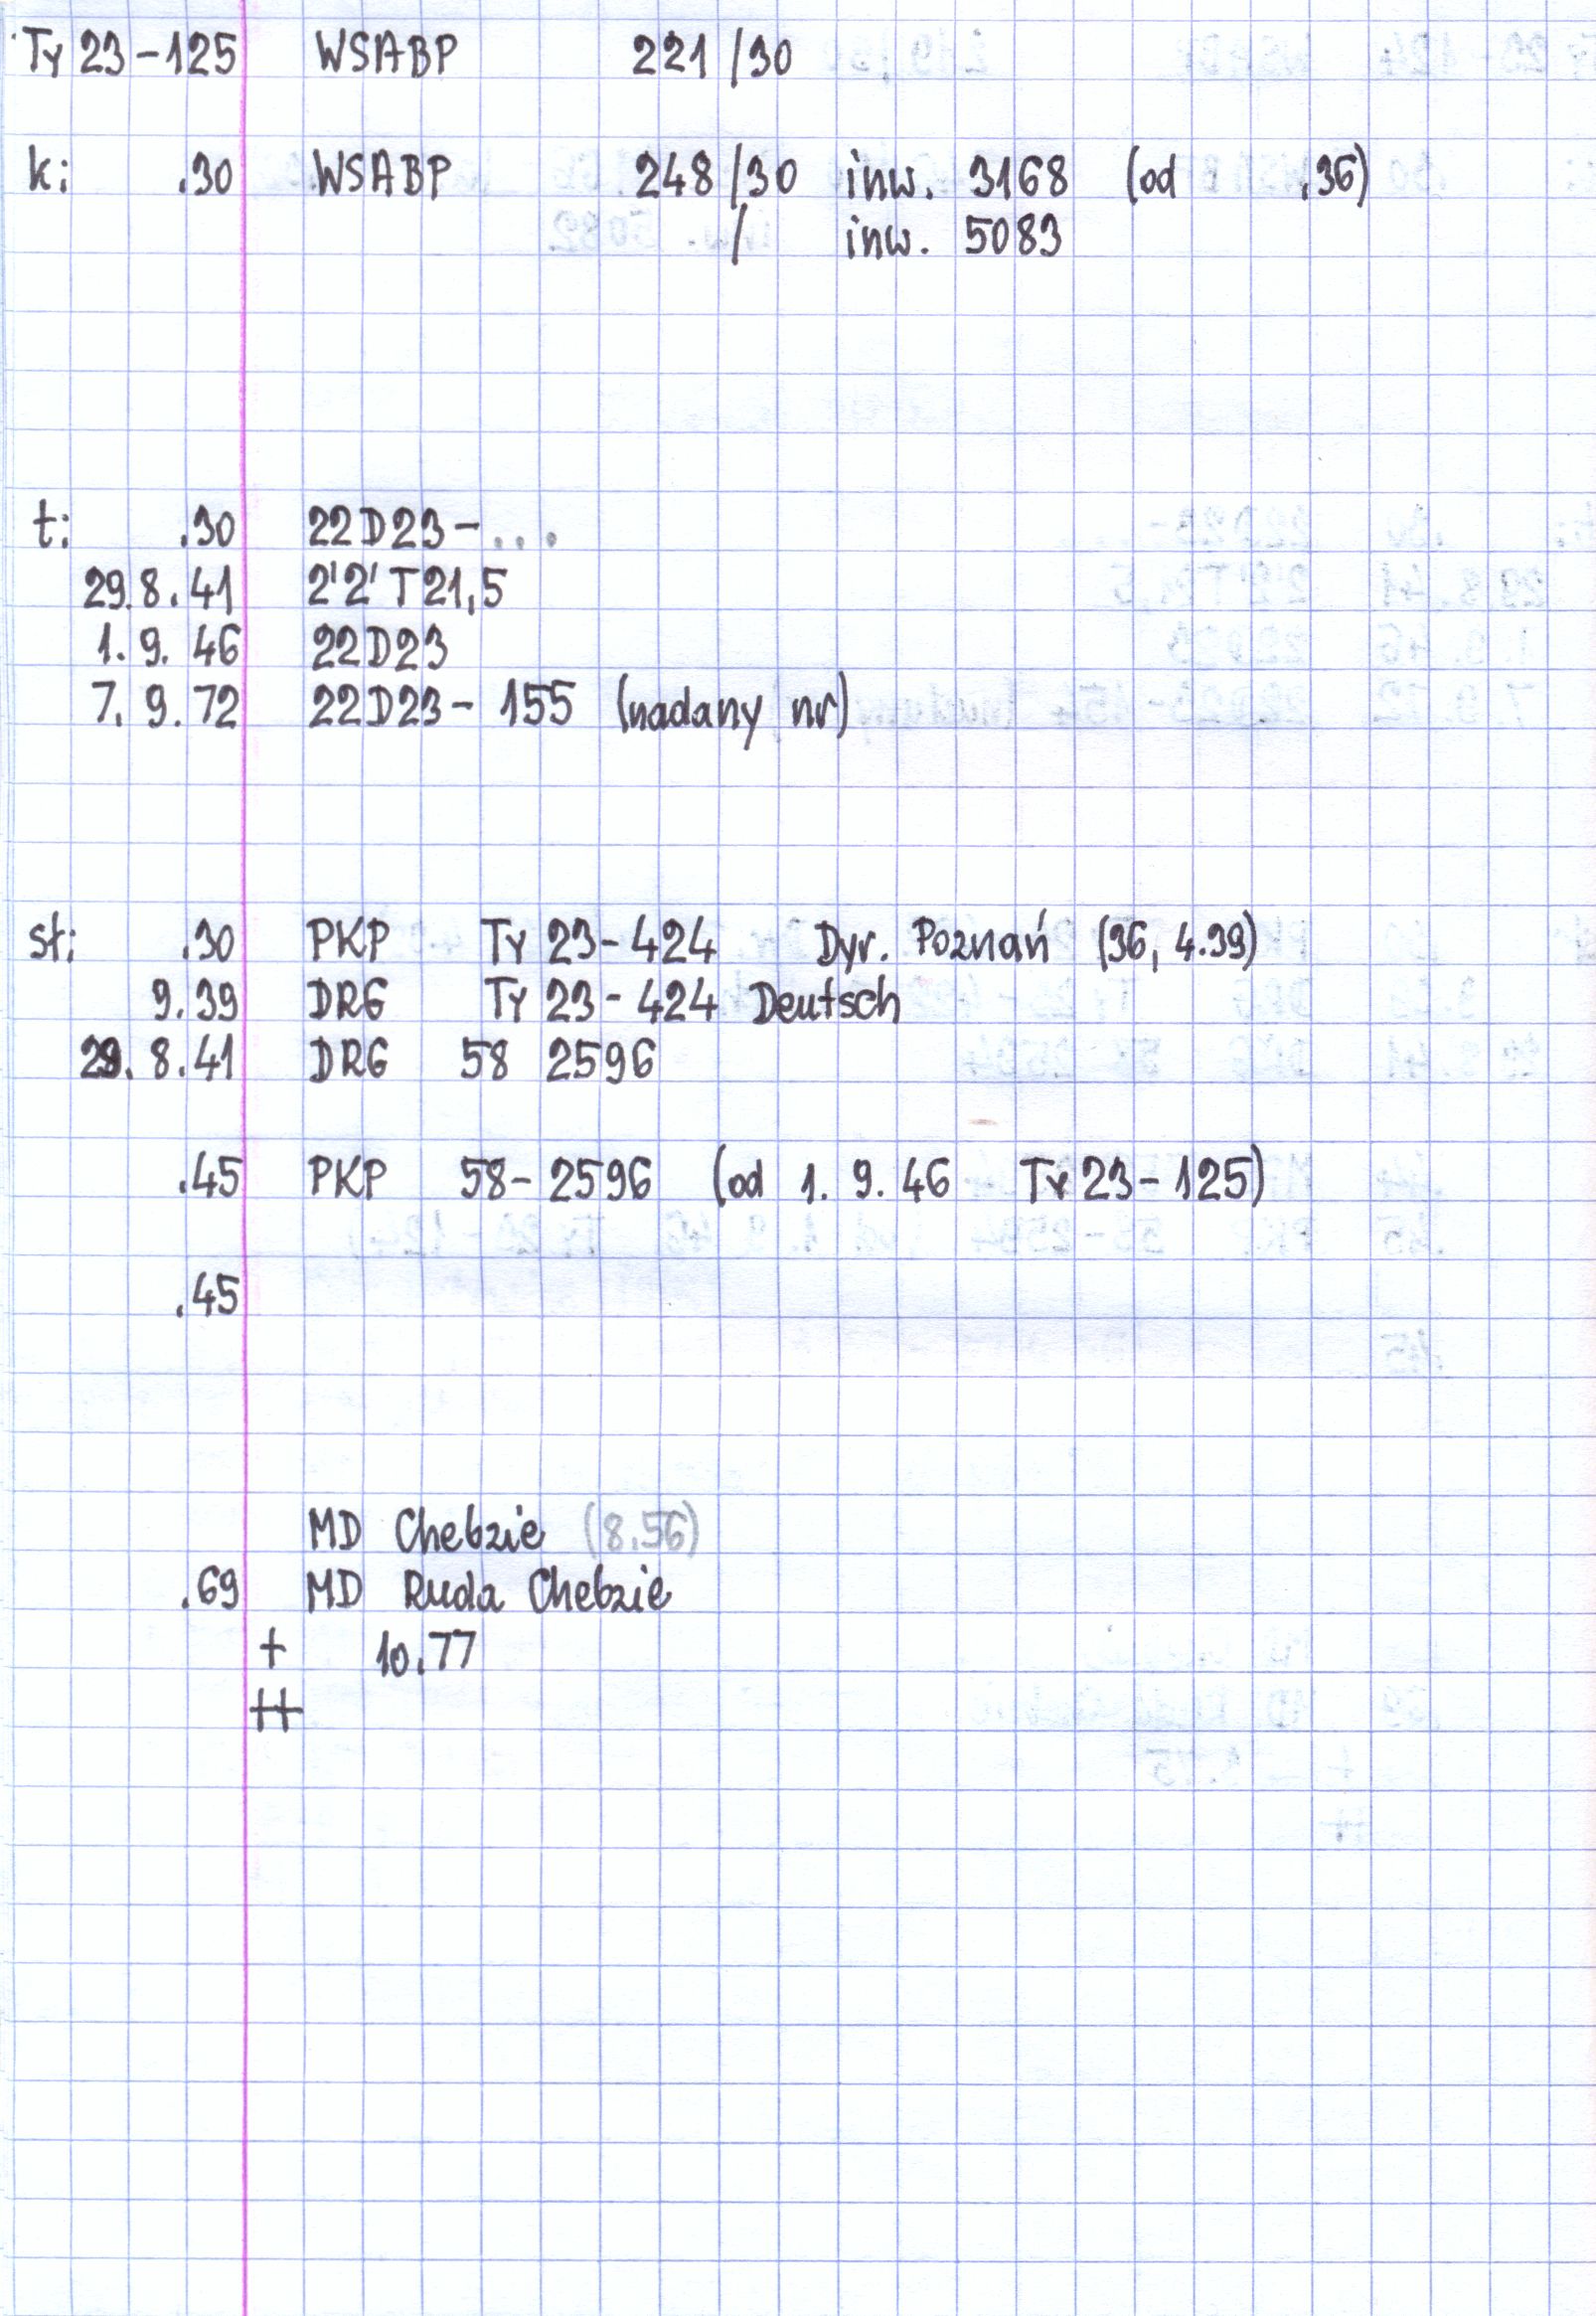 Ty 23-125 WSABP 221/30
k: .30 WSABP 248/30 inw. 3168 (od .36)
/ inw. 5083
t: .30 22D23-...
29.8.41 2'2'T21,5
1.9.46 22D23
7.9.72 22D23-155 (nadany nr)
st: .30 PKP Ty 23-424 Dyr. Poznań (36, 4.39)
9.39 DRG Ty 23-424 Deutsch
29.8.41 DRG 58 2596
.45 PKP 58-2596 (od 1.9.46 Ty 23-125)
.45
MD Chebzie (8.56)
.69 MD Ruda Chebzie
+ 10.77
++